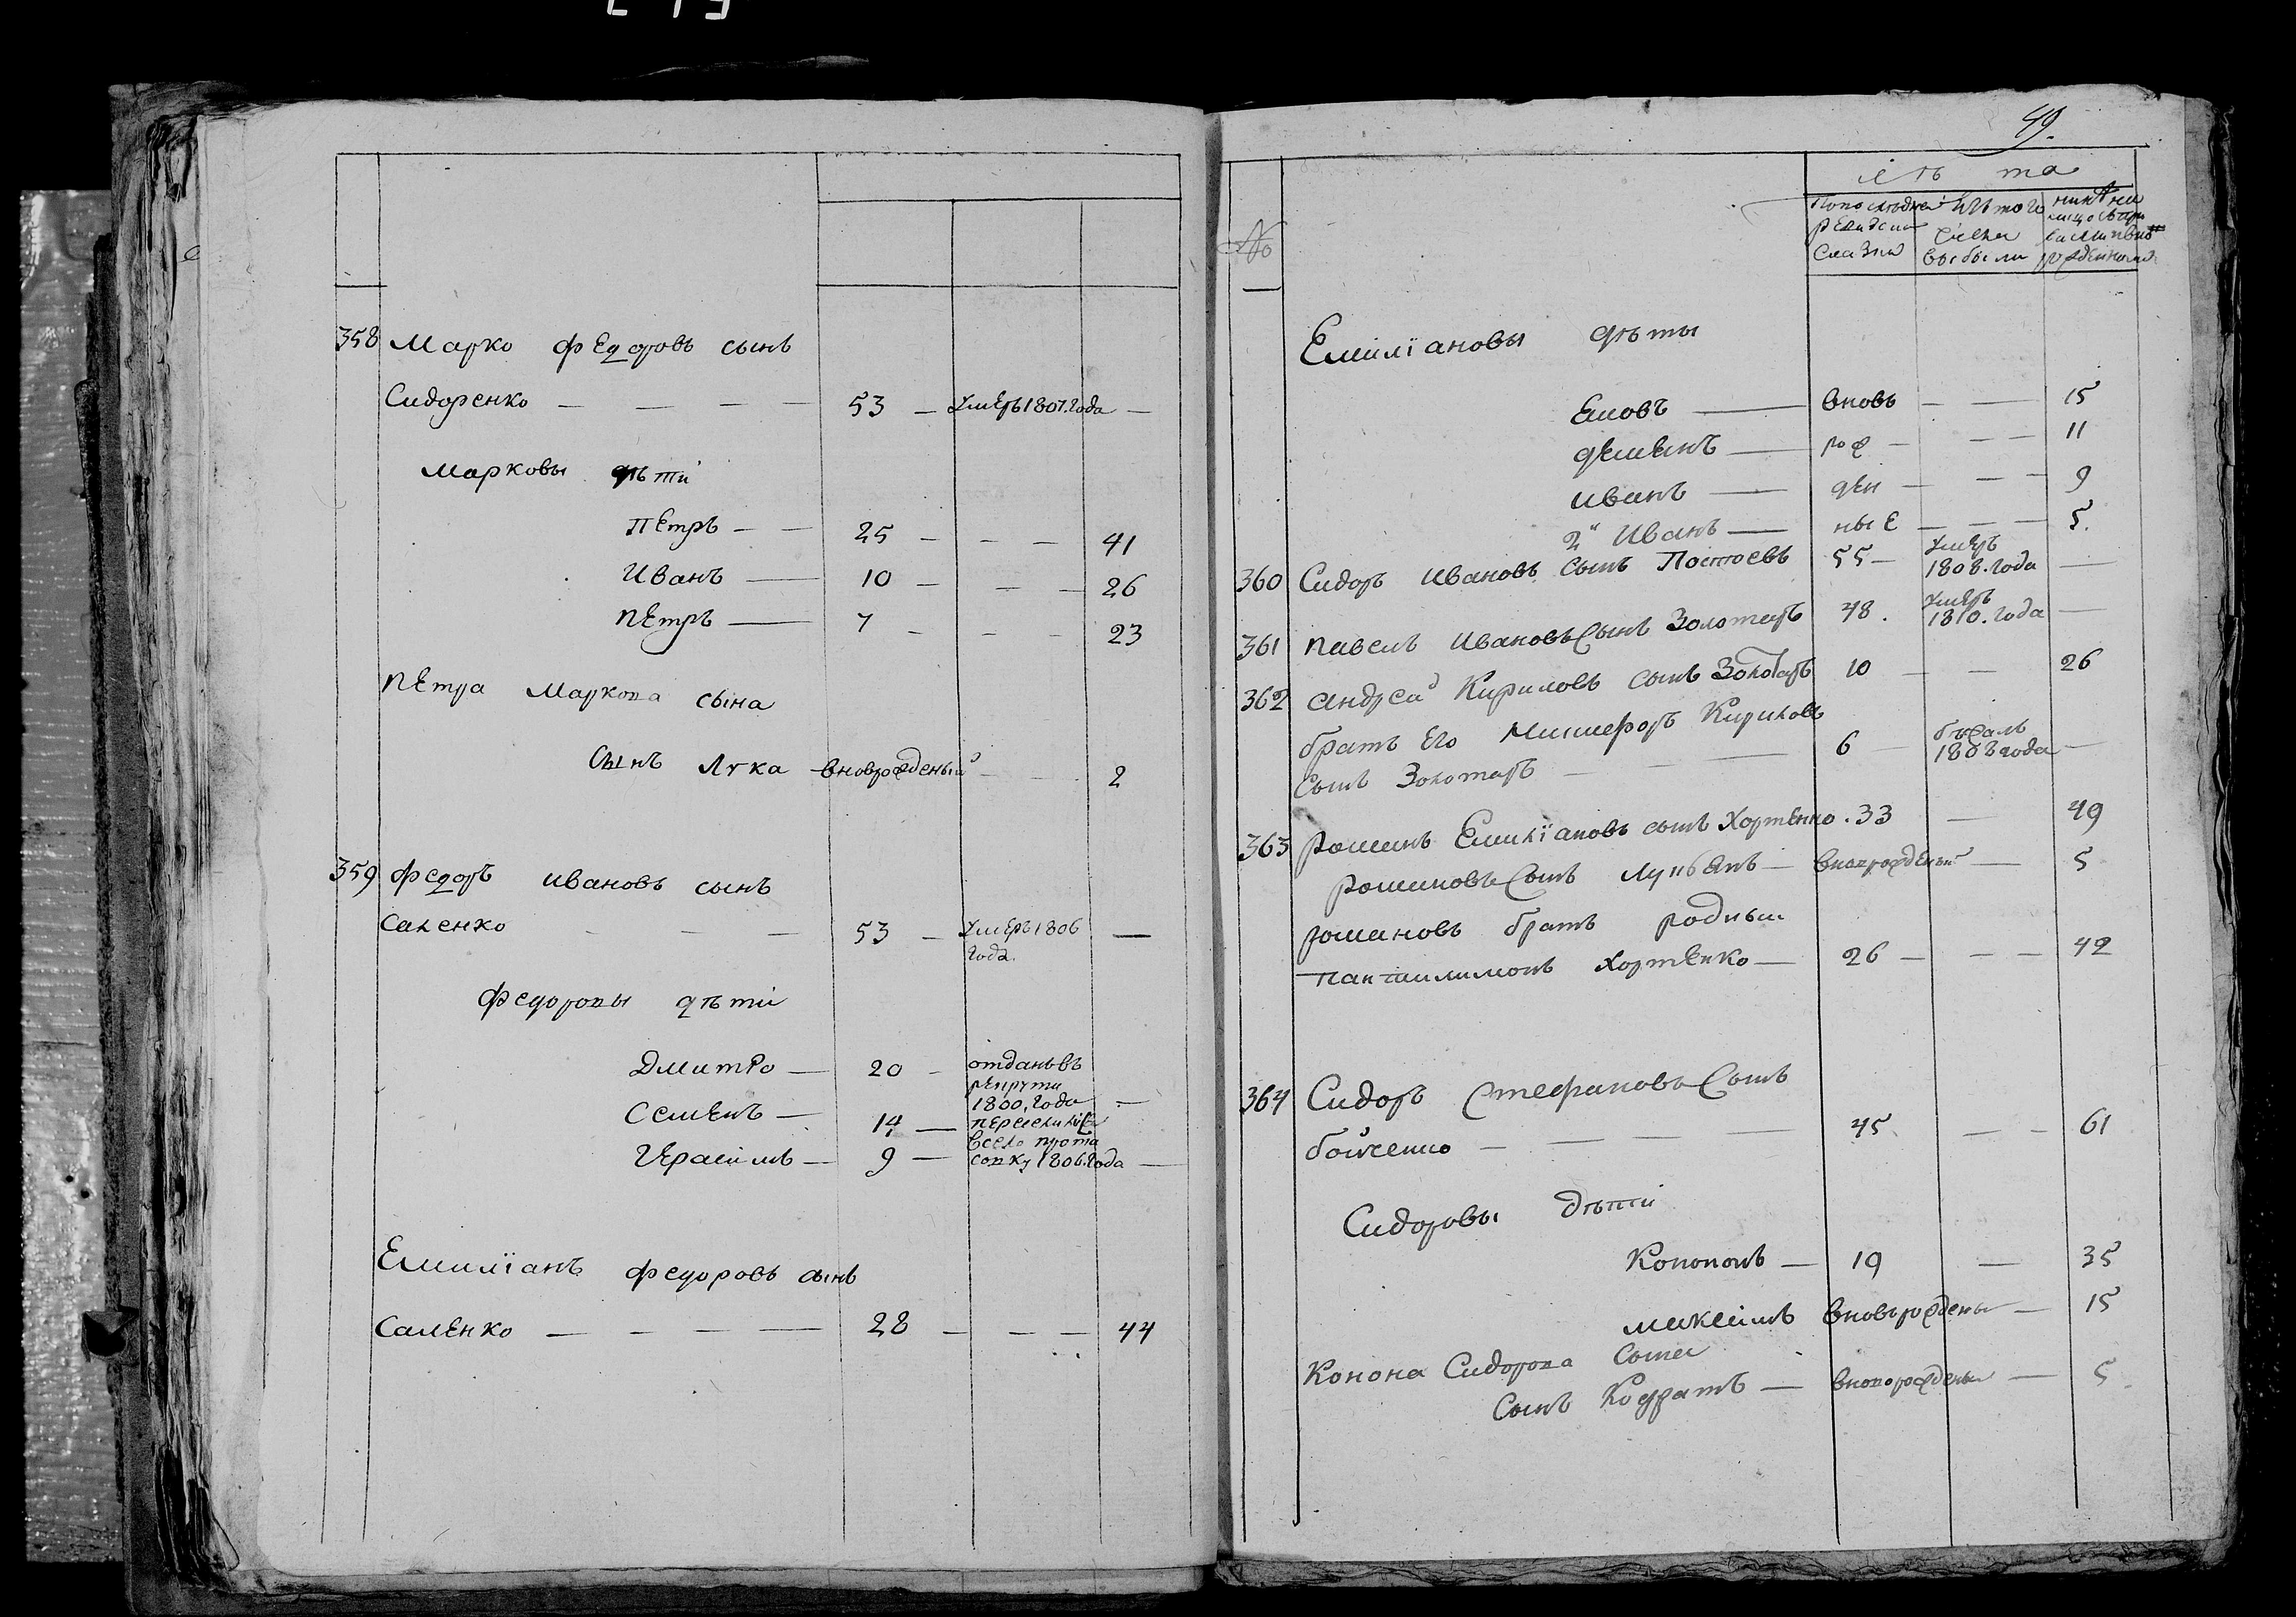 358 Марко Федоровъ сынъ
Сидоренко — — — — 53 — умеръ 1807. года —
Марковы дѣти
Петръ — — 25 — — — 41
Иванъ — 10 — — — 26
Петръ — 7 — — — 23
Петра Маркова сына
сынъ Лука вноврожденый — 2
359 Федоръ Ивановъ сынъ
Саленко — — — 53 — умеръ 1806 —
года.
Федоровы дѣти
Дмитро — 20 — отданъ въ
рекруты
1800, года —
Семенъ — 14 — переселились
Герасимъ — 9 — всело прота
совку 1806. года —
Емилїанъ Федоровъ сынъ
Саленко — — — — 28 — — — 44
49.
лѣ та
№
По последней ревизской сказки
Изъ того числа выбыли
нынѣ на лицо
Емилїановы дѣты
вновь — — 15
Деменъ — рож — — — 11
Иванъ — ден — — — 9
2й Иванъ — ные — — — 5.
360 Сидоръ Ивановъ сынъ 55 — умеръ 1808. года —
361 Павелъ Ивановъ сынъ Золотарь 48. умеръ 1810. года —
362 Андрей Кириловъ сынъ Золотарь 10 — — 26
братъ его Никифоръ Кириловъ
сынъ Золотарь — — — 6 — бѣжалъ 1808 года —
363 Романъ Емилїановъ сынъ Хортенко. 33 — 49
Романовъ сынъ Лукьянъ — вноврожденый — 5
романовъ братъ родный
Пантилимонъ Хортенко — 26 — — — 42
364 Сидоръ Стефановъ сынъ
Бойченко — — — — 45. — — 61
Сидоровы дѣти
Кононъ — 19 — 35
Максимъ вноврожденый — 15
Конона Сидорова сына
сынъ Кодратъ — вноворожденый — 5